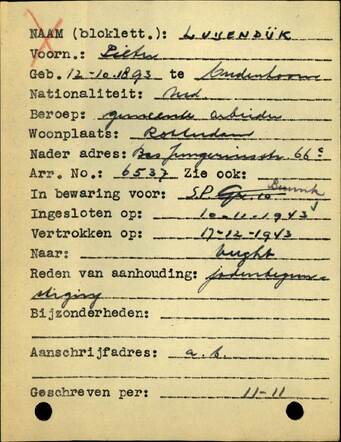 NAAM (bloklett.): LUYENDIJK
Voorn.: Pieter
Geb. 12-10.1893 te
Nationaliteit: Ned
Beroep: gemeente arbeider
Woonplaats: Rotterdam
Nader adres: Bas Jungeriusstr. 66c
Arr. No.: 6537 Zie ook:
In bewaring voor: S.P.
Ingesloten op: 10-11-1943
Vertrokken op: 17-12-1943
Naar: Vught
Reden van aanhouding: jodenbegun-
stiging
Bijzonderheden:
Aanschrijfadres: a.b.
Geschreven per: 11-11